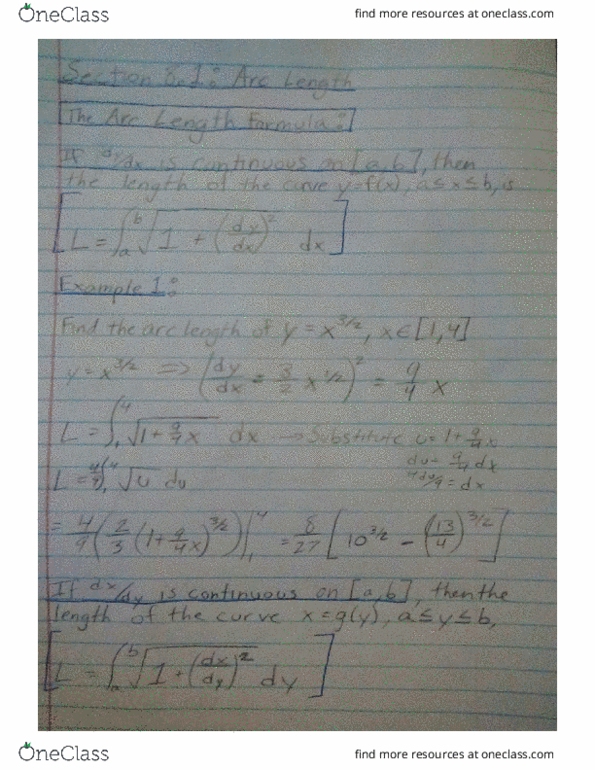 OneClass
find more resources at oneclass.com
Section 8.1: Arc Length
The Arc Length Formula:
If dy/dx is continuous on [a,b], then
the length of the curve y=f(x), a≤x≤b, is
[L = ∫_a^b √(1 + (dy/dx)^2) dx]
Example 1:
Find the arc length of y = x^{3/2}, x∈[1,4]
y = x^{3/2} => (dy/dx = 3/2 x^{1/2})^2 = 9/4 x
L = ∫_1^4 √(1 + 9/4 x) dx → Substitute u = 1 + 9/4 x
du = 9/4 dx
L = 4/9 ∫_1^4 √u du 4du/9 = dx
= 4/9 (2/3 (1 + 9/4 x)^{3/2}) |_1^4 = 8/27 [10^{3/2} - (13/4)^{3/2}]
If dx/dy is continuous on [a,b], then the
length of the curve x=g(y), a≤y≤b,
[L = ∫_a^b √(1 + (dx/dy)^2) dy]
OneClass
find more resources at oneclass.com